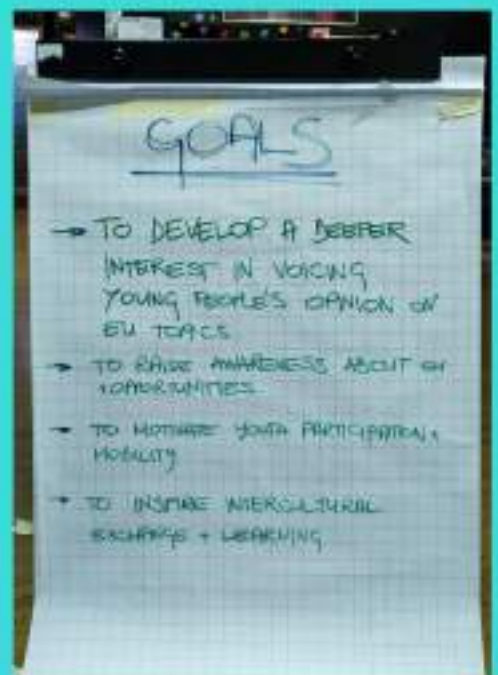 GOALS
→ TO DEVELOP A DEEPER
INTEREST IN VOICING
YOUNG PEOPLE'S OPNION ON
EU TOPICS
→ TO RAISE AWARENESS ABOUT EU
+OPPORTUNITIES
→ TO MOTIVATE YOUTH PARTICIPATION +
MOBILITY
→ TO INSPIRE INTERCULTURAL
EXCHANGE + LEARNING